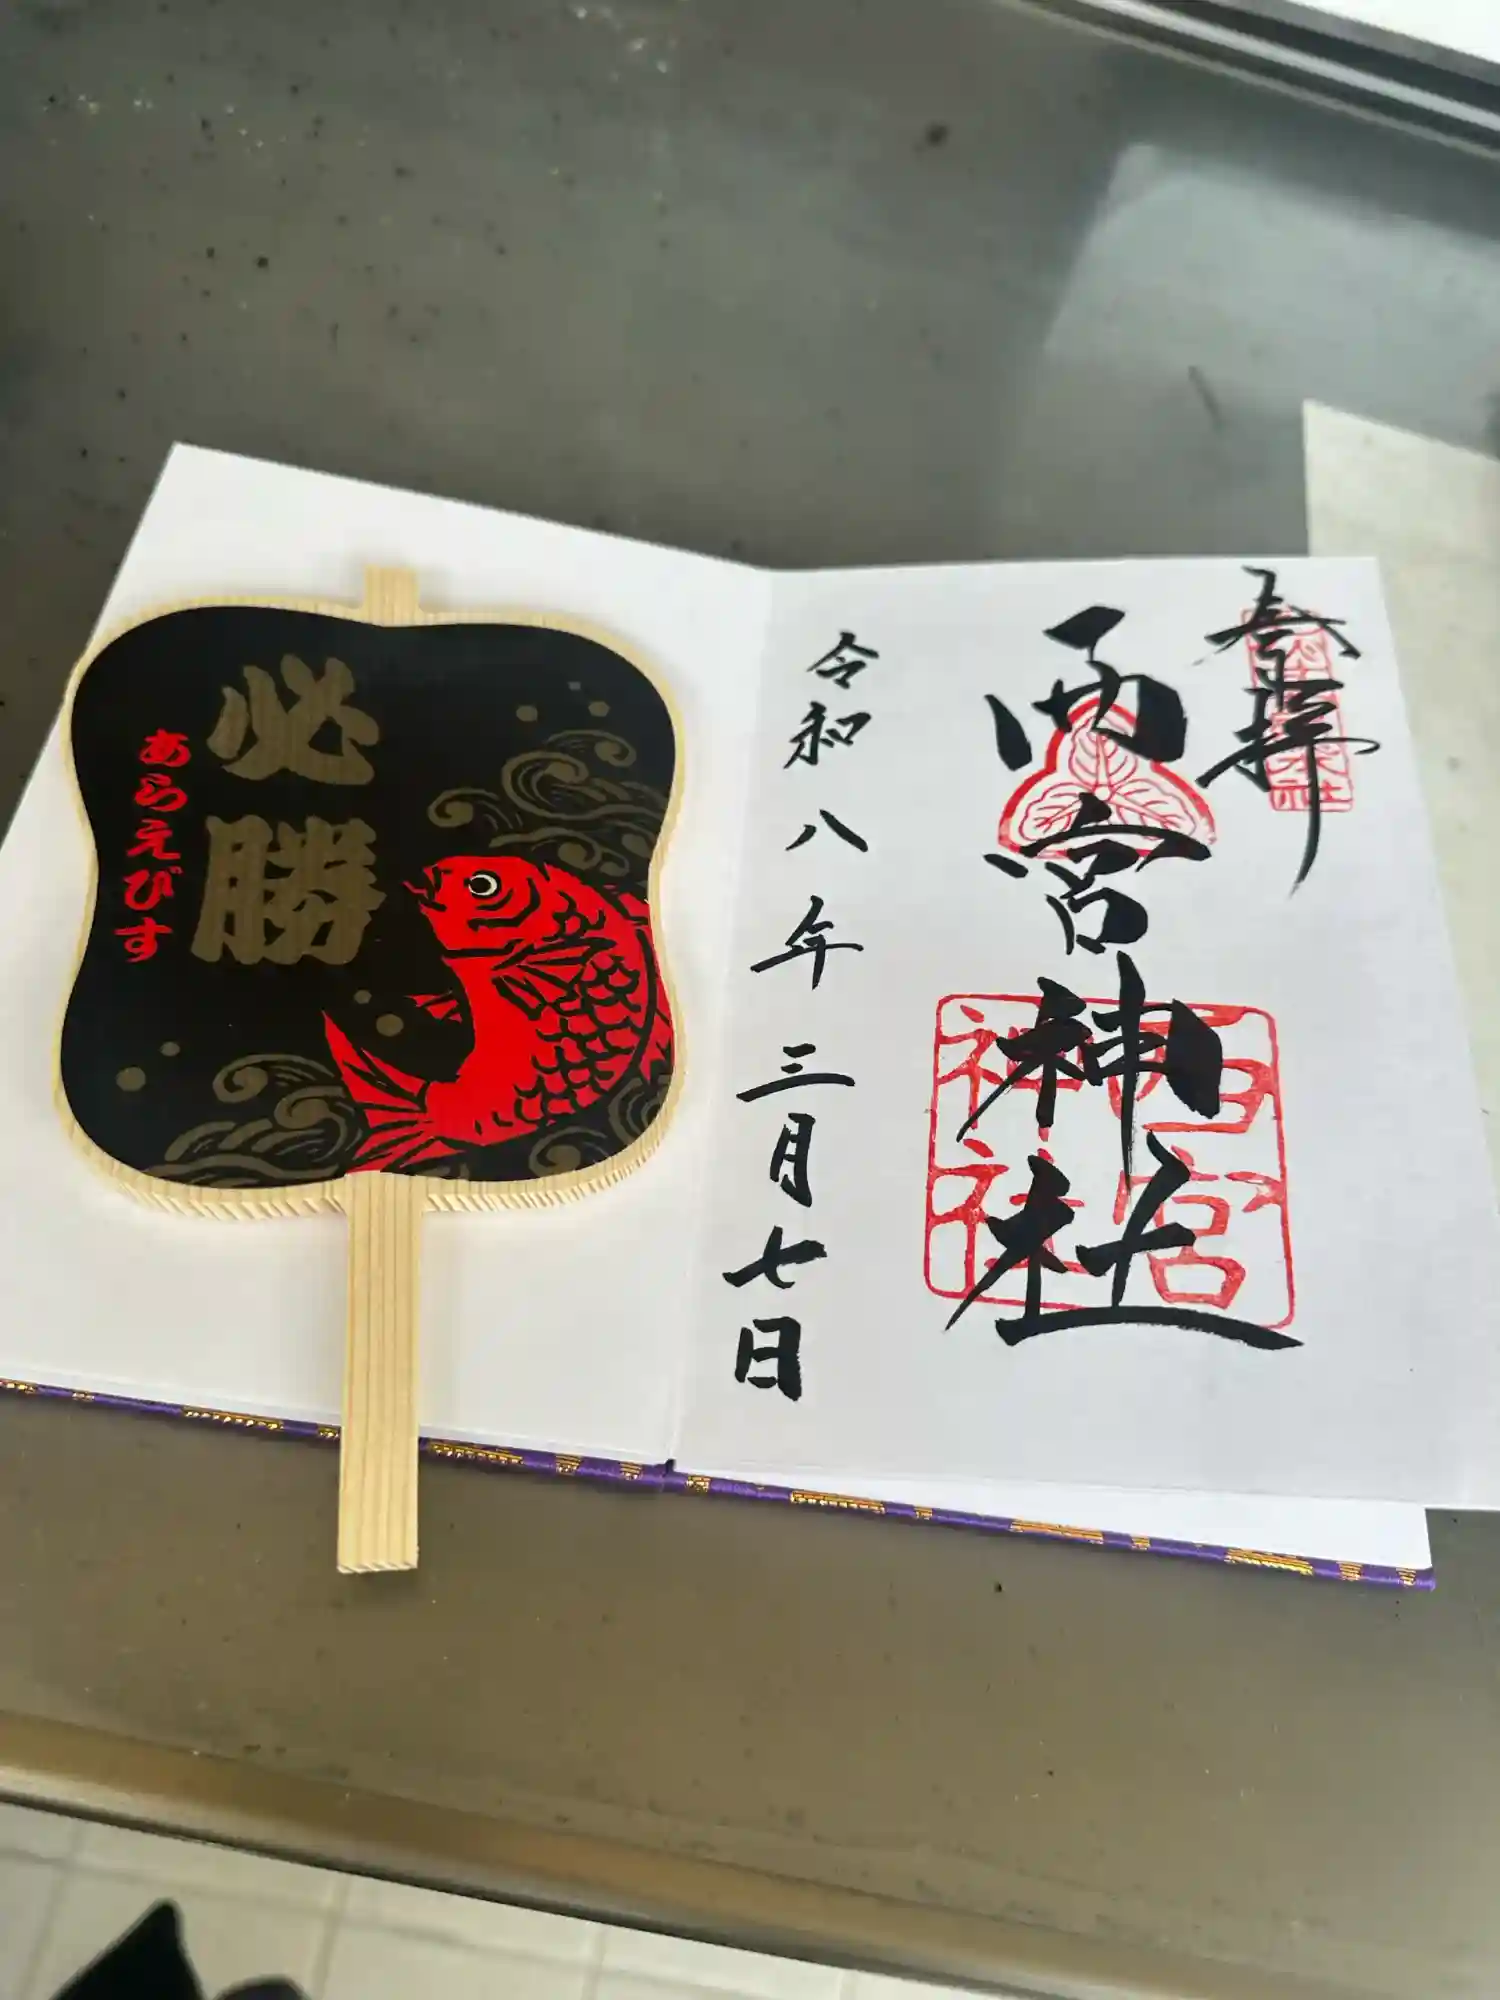 奉拝
西宮神社
西宮神社
令和八年三月七日
必勝
あらえびす